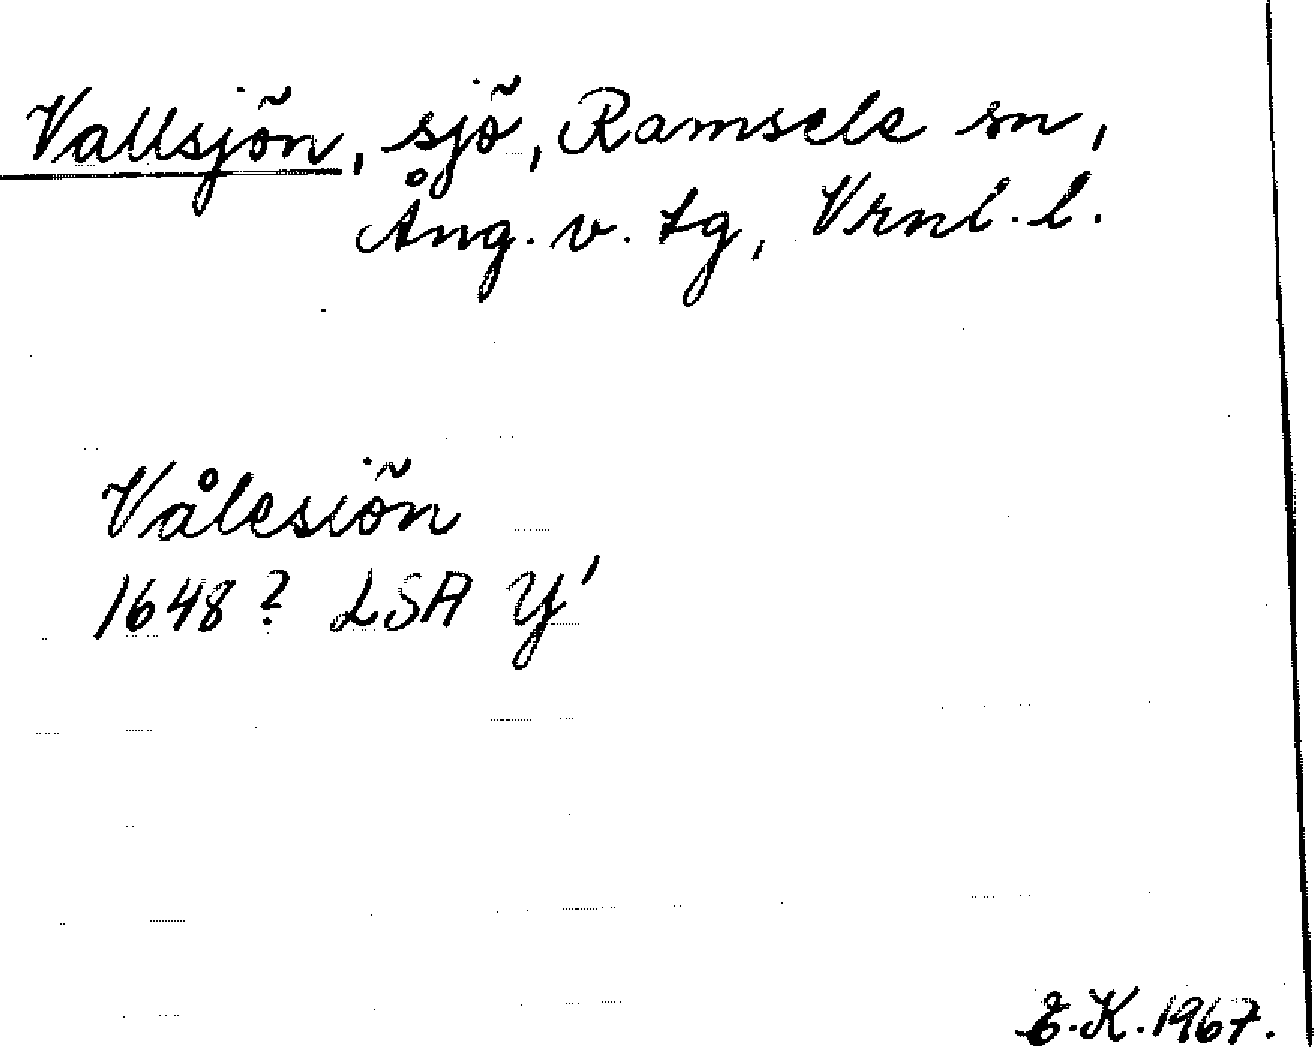 Vallsjön, sjö, Ramsele sn,
Ång. v. tg, Vrnl. l.
Vålesiön
1648? LSA Y'
E.K. 1967.